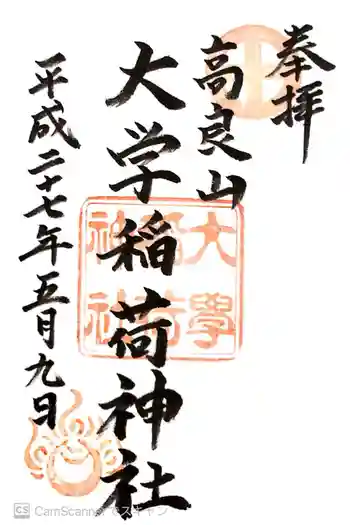 奉拝
高良山
大学稲荷神社
平成二十七年五月九日
大學
稲荷
神社
CS CamScanner でスキャン